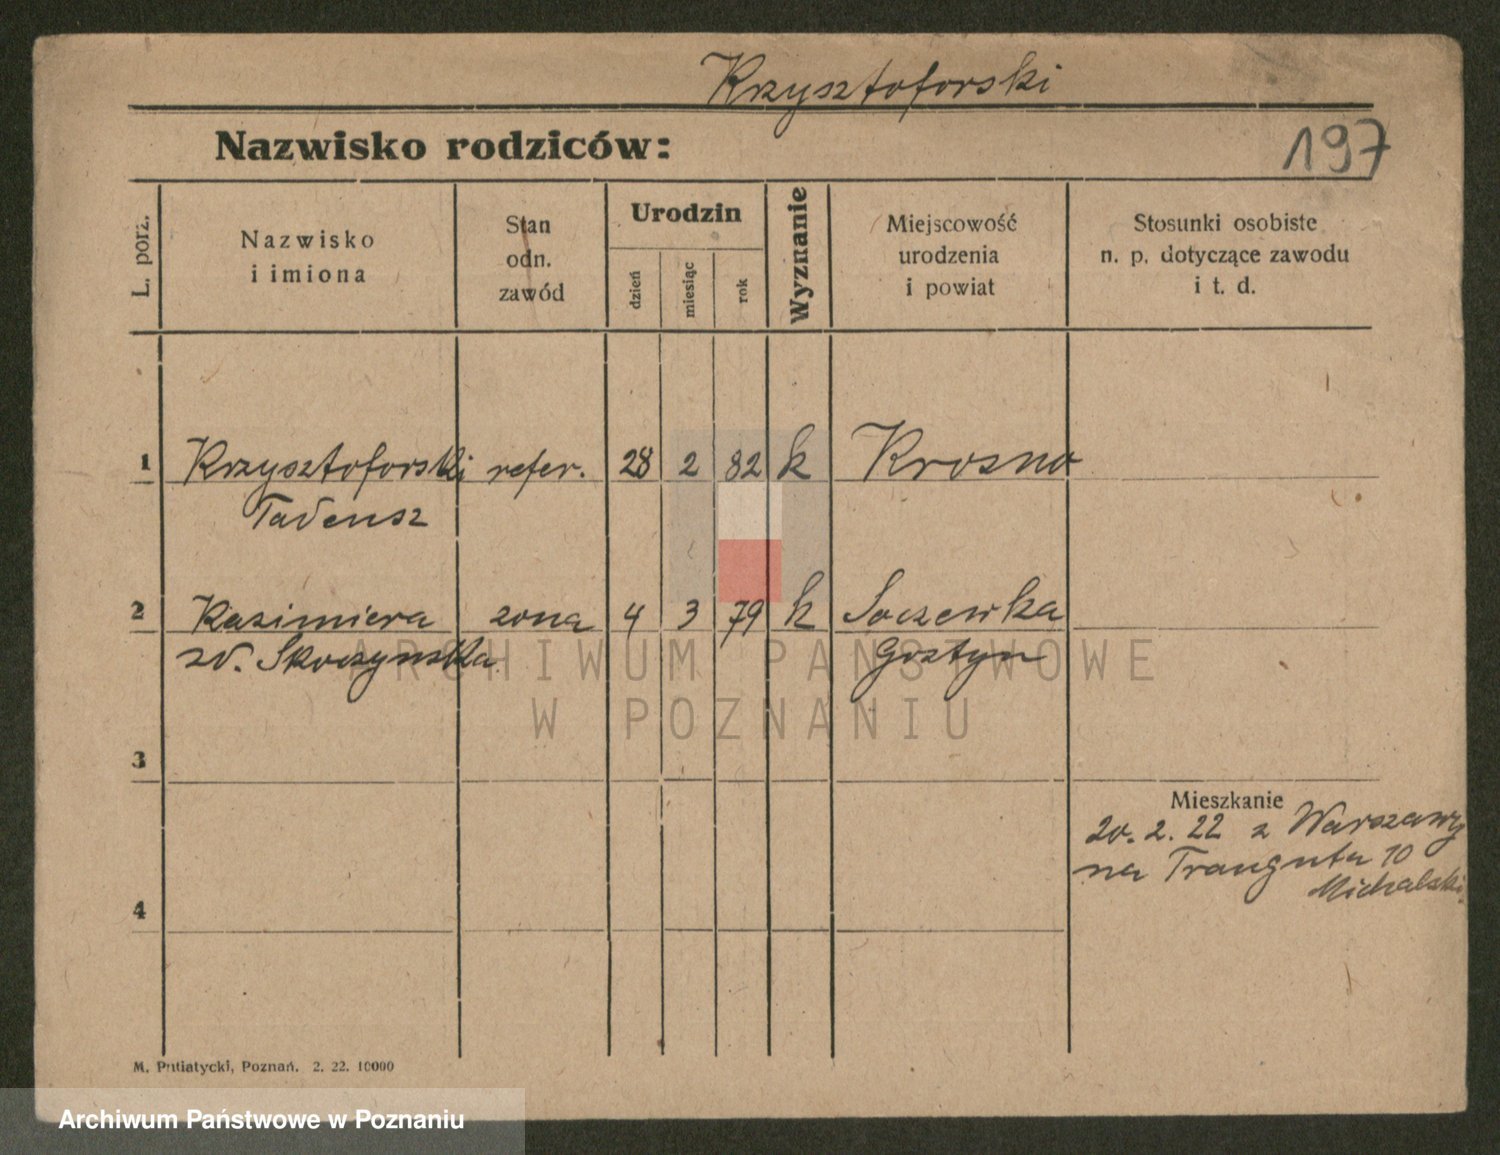 Krzysztoforski
Nazwisko rodziców:
197
L. porz.
Nazwisko
i imiona
Stan
odn.
zawód
Urodzin
dzień
miesiąc
rok
Wyznanie
Miejscowość
urodzenia
i powiat
Stosunki osobiste
n. p. dotyczące zawodu
i t. d.
1 Krzysztoforski refer. 28 2 82 k Krosno
Tadeusz
2 Kazimiera zona 4 3 79 k Soczewka
zd. Skoczynska Gostyn
3
Mieszkanie
20. 2. 22 z Warszawy
na Trauguta 10
Michalski
4
M. Putiatycki, Poznań. 2. 22. 10000
ARCHIWUM PAŃSTWOWE
W POZNANIU
Archiwum Państwowe w Poznaniu